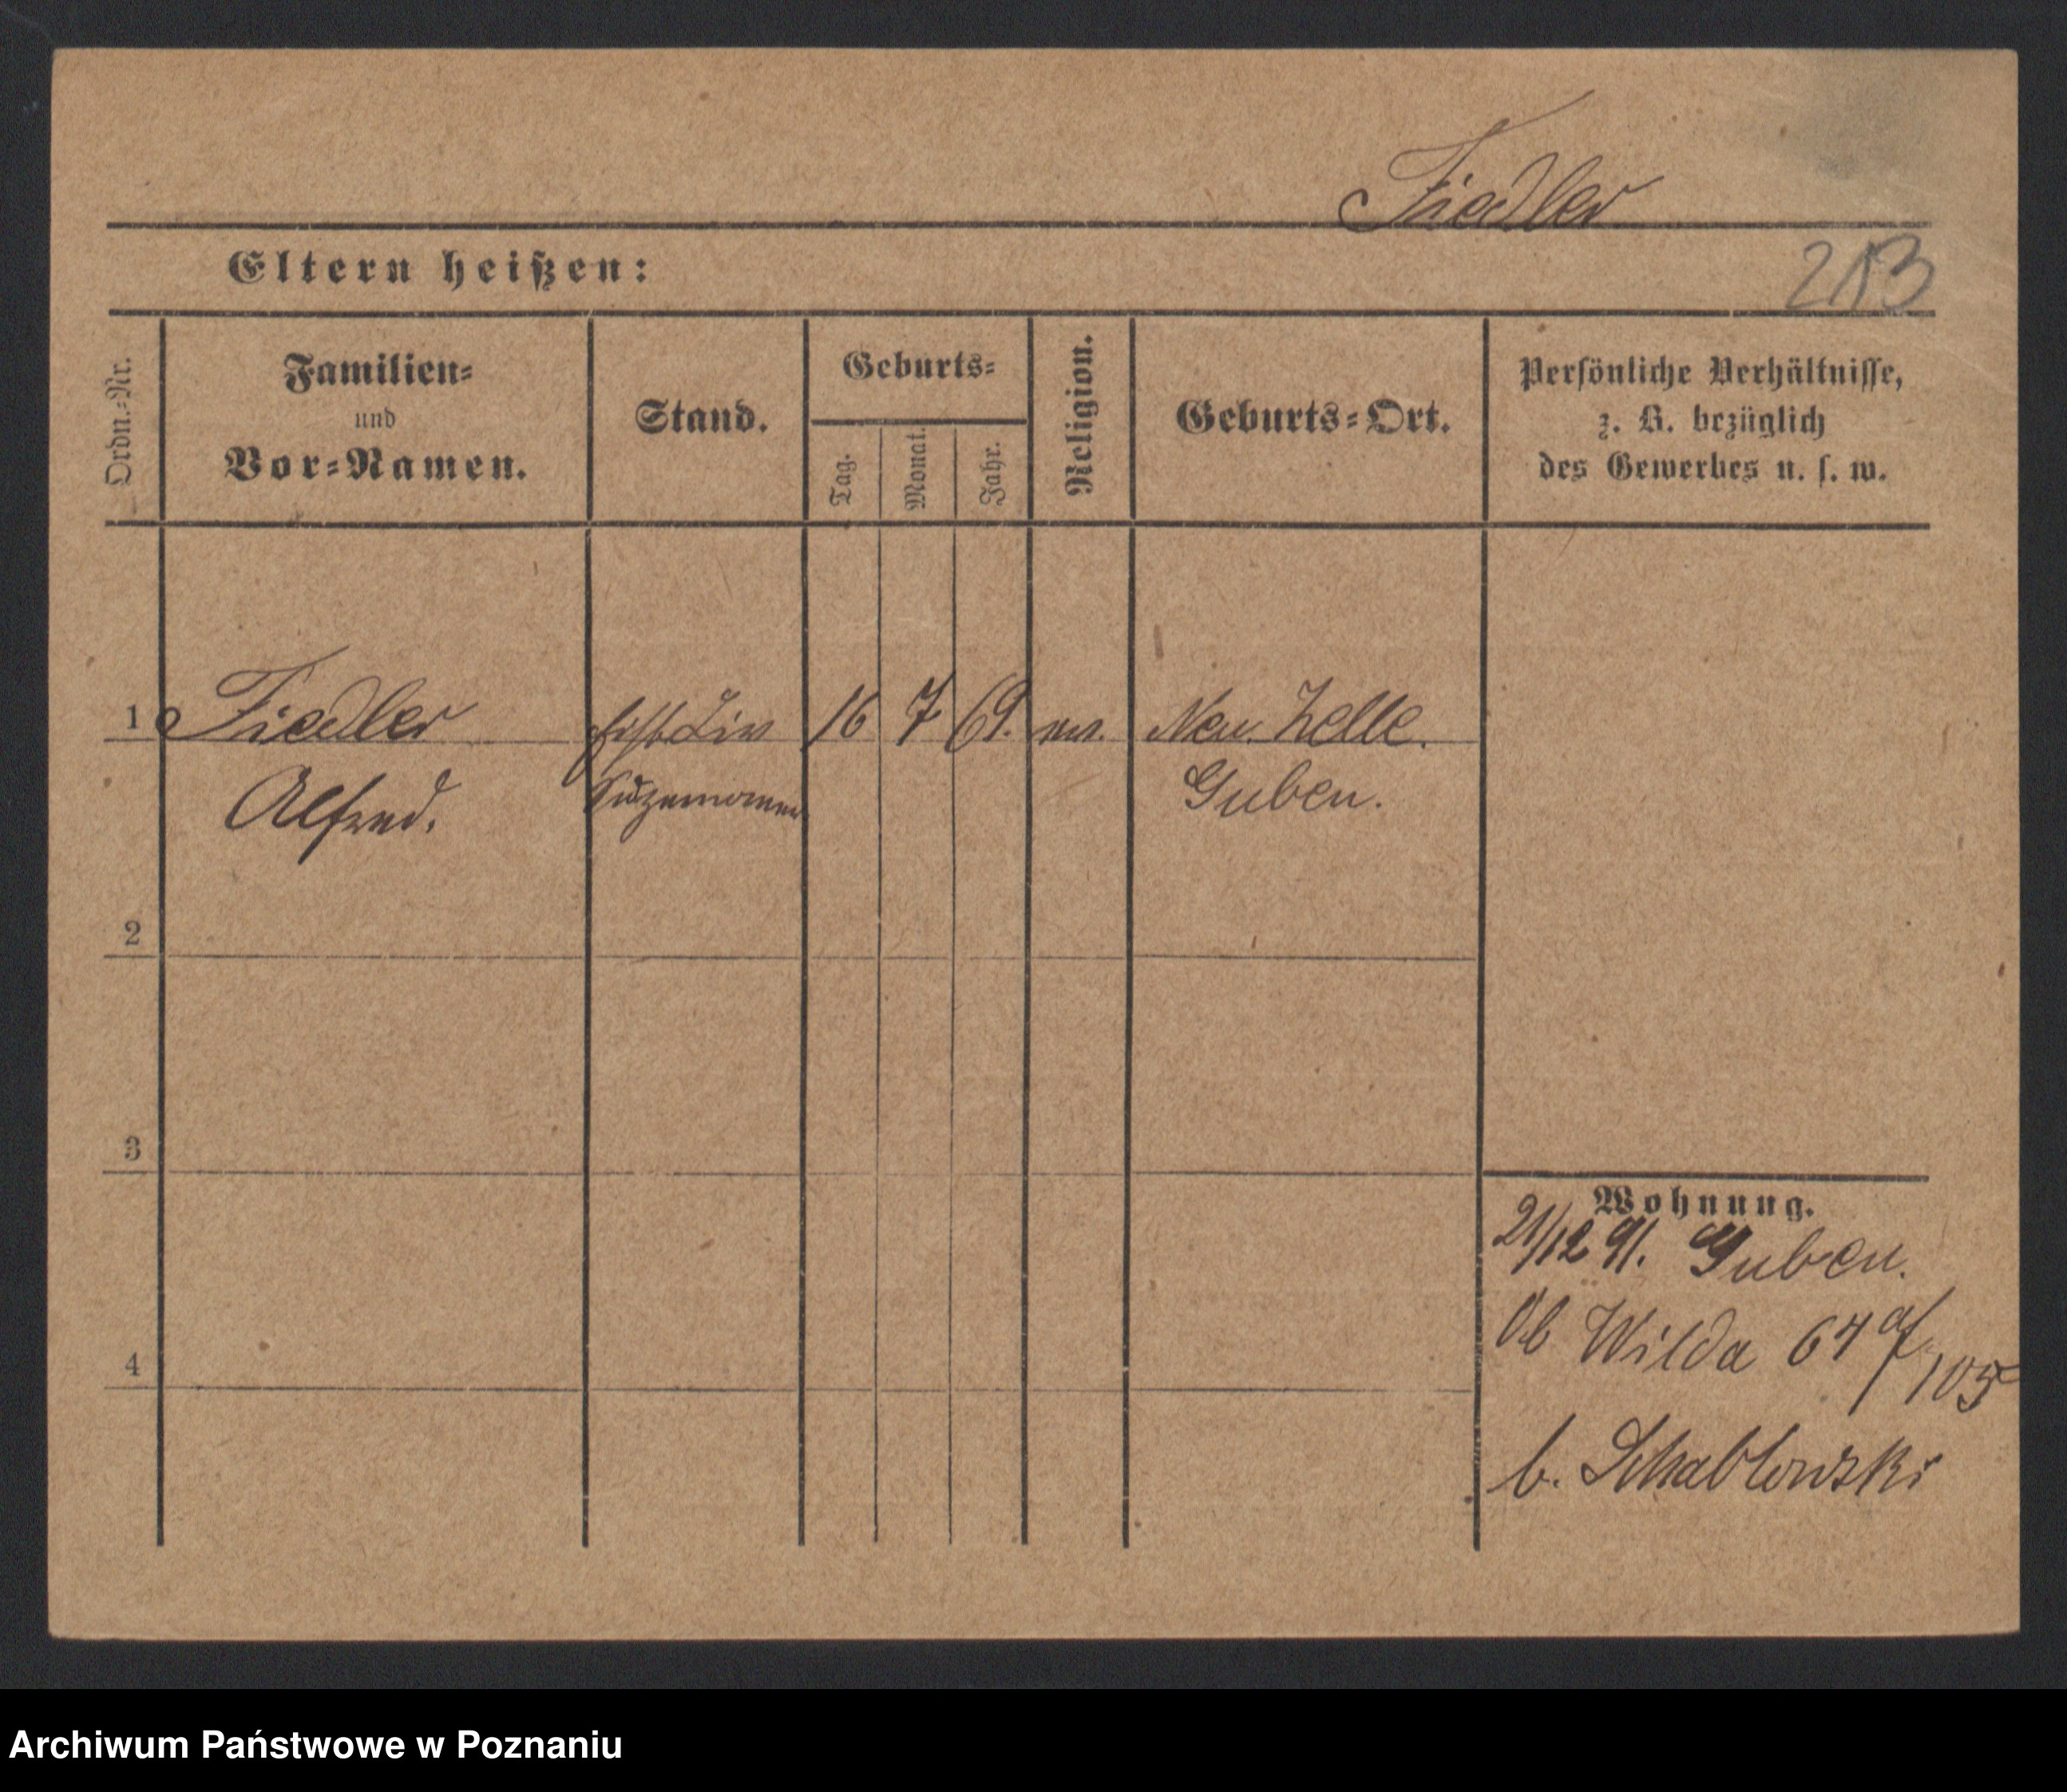 Fiedler
Eltern heißen:
213
Ordn.-Nr.
Familien-
und
Vor-Namen.
Stand.
Geburts-
Tag.
Monat.
Jahr.
Religion.
Geburts-Ort.
Persönliche Verhältnisse,
z. B. bezüglich
des Gewerbes u. s. w.
1 Fiedler 16 7 69. ev. Neu. Zelle.
Alfred. Guben.
2
3
4
Wohnung.
21/12 91. Guben.
Ob Wilda 64 a/105
b. Schablowski
Archiwum Państwowe w Poznaniu